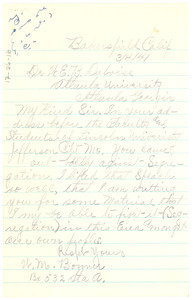 Bakersfield Calif
3/4/41
Dr. W.E.B. Duboise
Atlanta University
Atlanta Georgia
My Kind Sir: In your address before the Faculty &
Students of Lincoln University
Jefferson City Mo. You came
out against Segregation. I liked that Speech
so well, that I am writing
you for some Material that
I may be able to fight (Segregation) in this Area among
our own people.
Respt Yours
W. Mc. Bonner
Bx 532 Sta A.